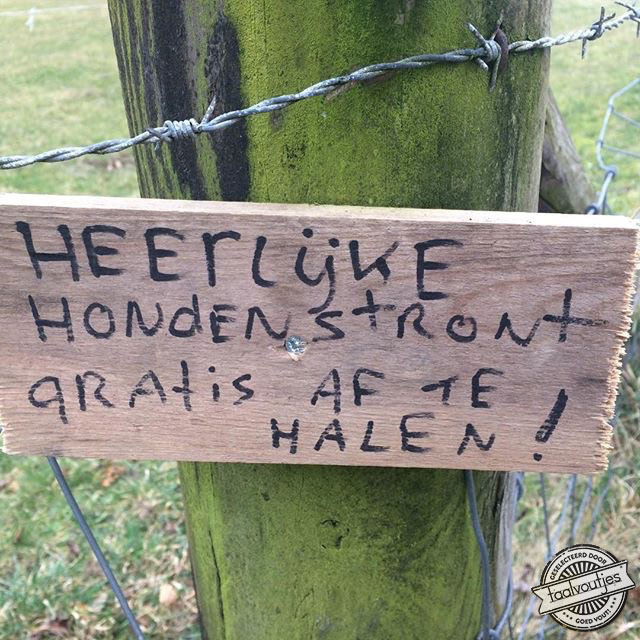 HEErLijKE
HONdEN stRONt
gRAtis AF TE
HALEN!
GESELECTEERD DOOR
taalvoutjes
GOED VOUT!